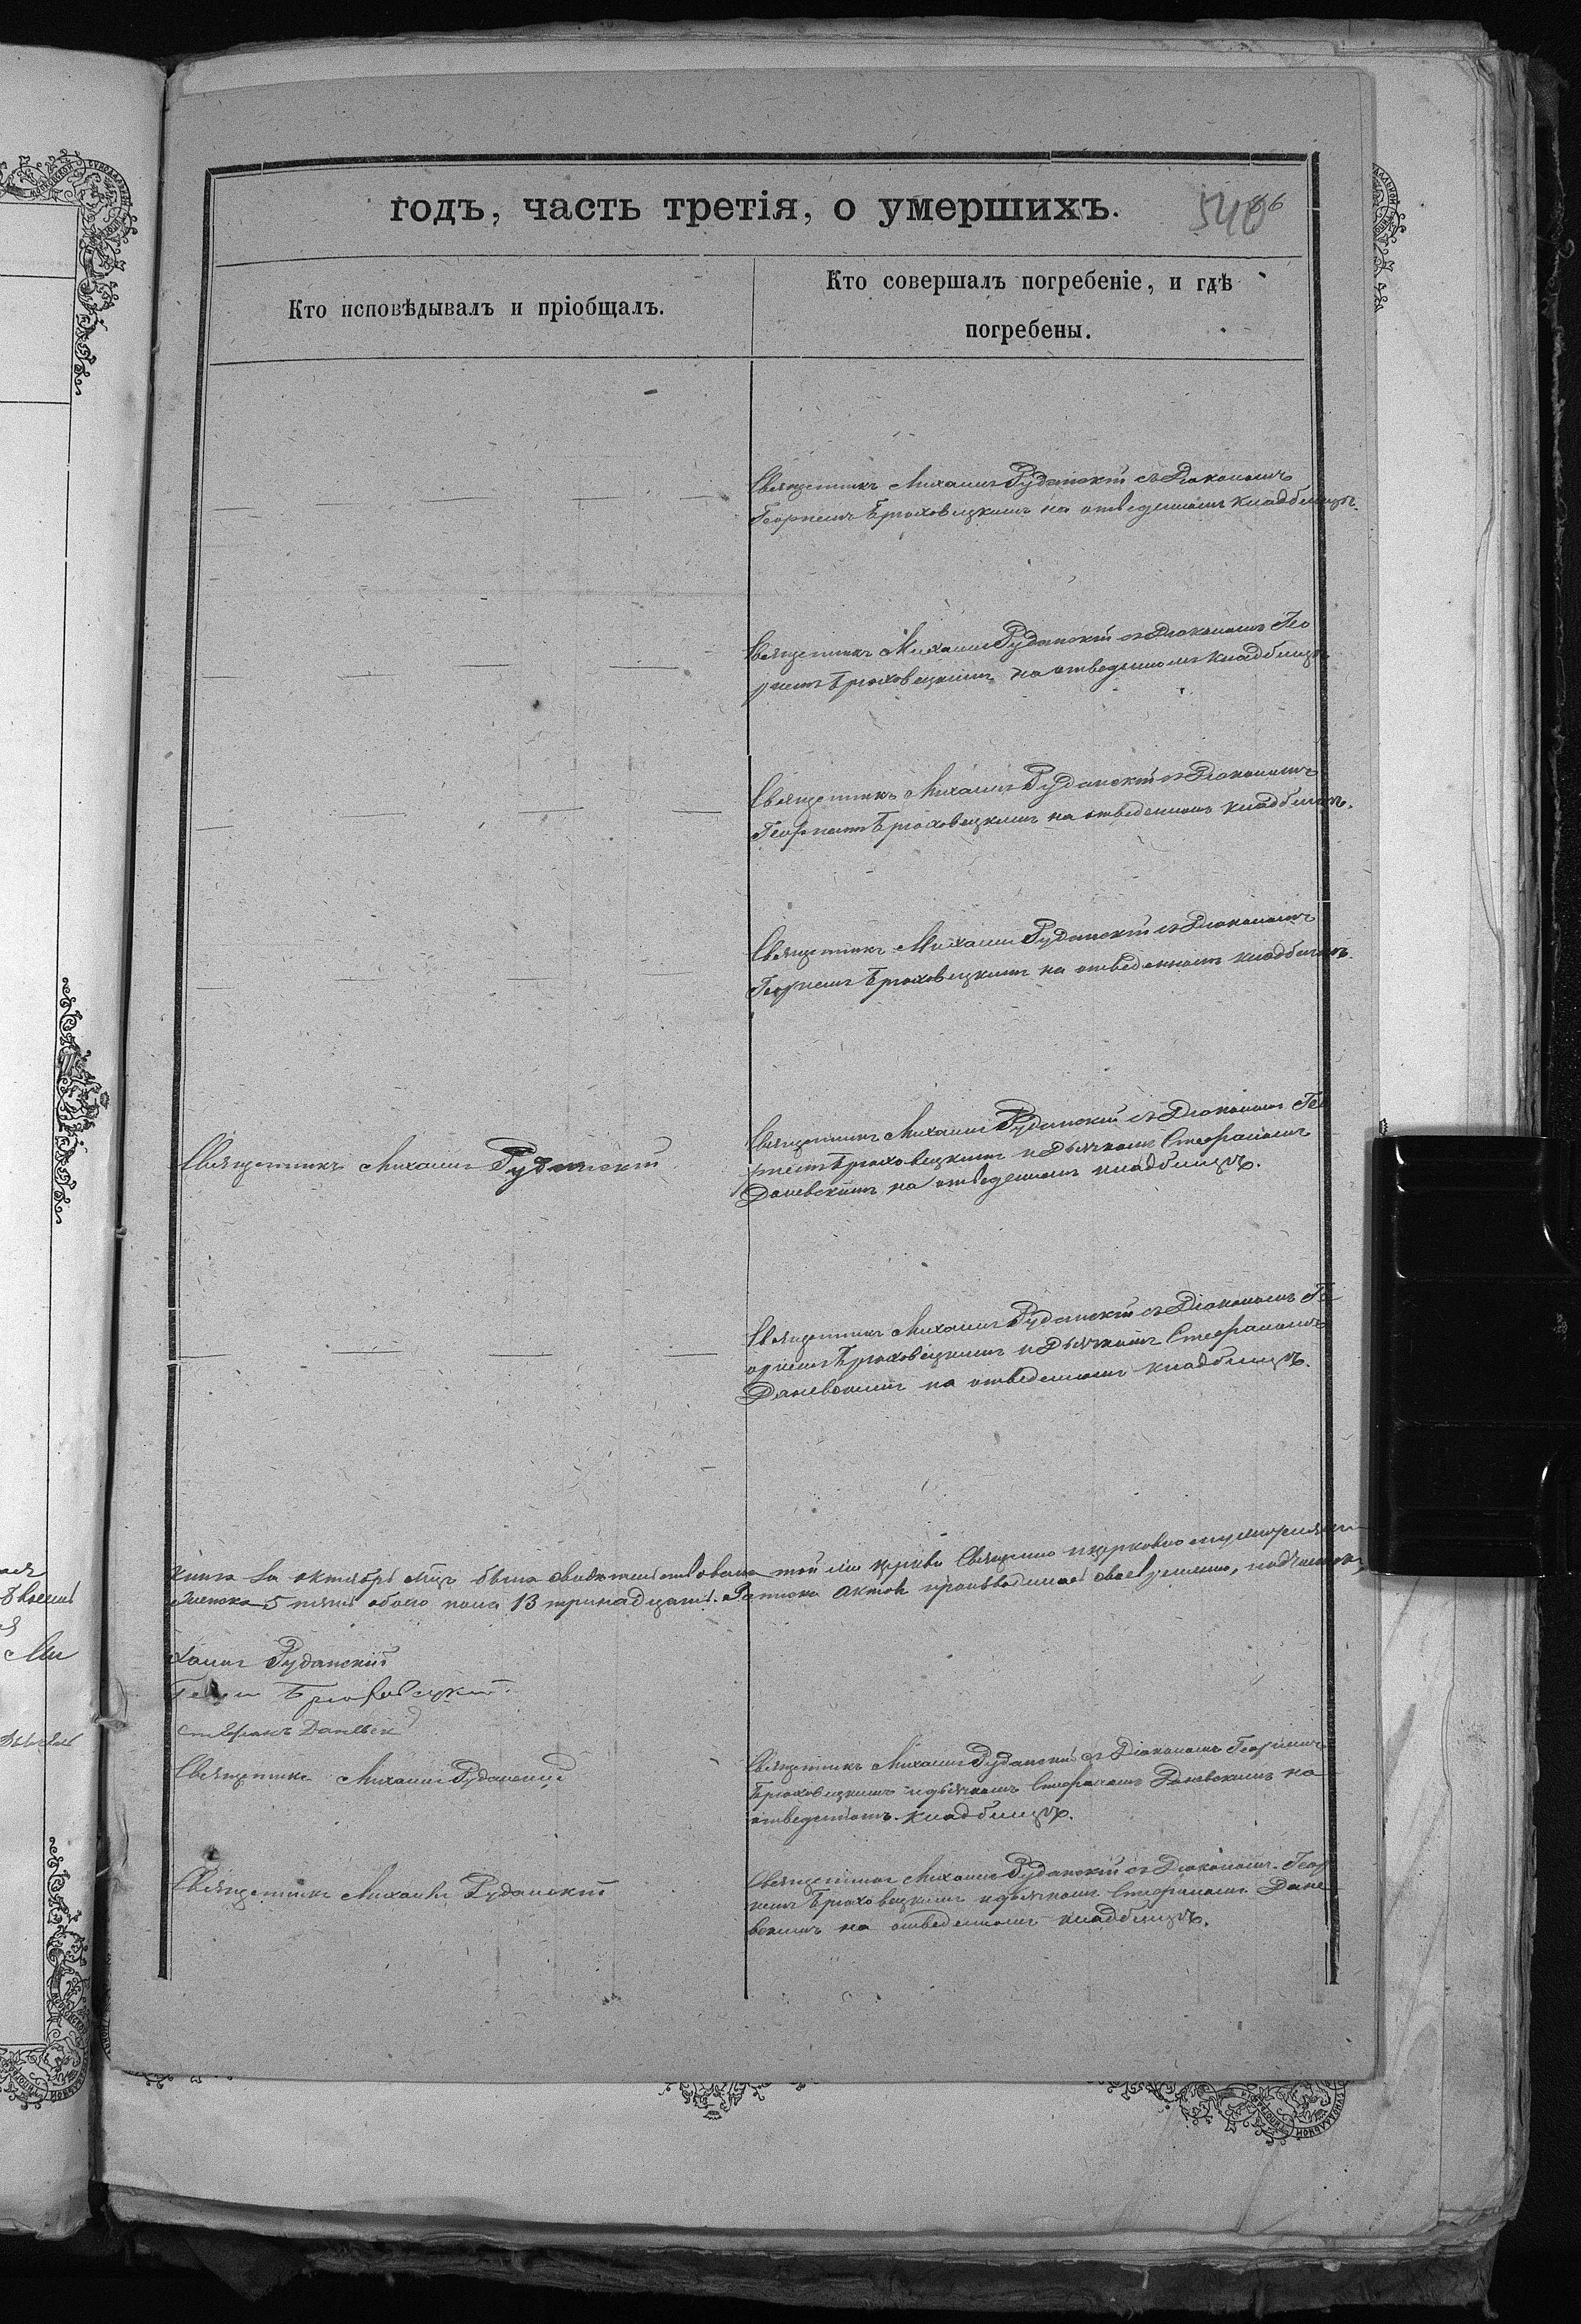 годъ, часть третія, о умершихъ.
Кто исповѣдывалъ и пріобщалъ.
Кто совершалъ погребеніе, и гдѣ
погребены.
Священникъ Михаилъ Руданскій съ Діакономъ
Георгіемъ Брюховецкимъ на отведенномъ кладбищѣ.
Священникъ Михаилъ Руданскій съ Діакономъ Гео
ргіемъ Брюховецкимъ на отведенномъ кладбищѣ
Священникъ Михаилъ Руданскій съ Діакономъ
Георгіемъ Брюховецкимъ на отведенномъ кладбищѣ.
Священникъ Михаилъ Руданскій съ Діакономъ
Георгіемъ Брюховецкимъ на отведенномъ кладбищѣ.
Священникъ Михаилъ Руданскій
Священникъ Михаилъ Руданскій съ Діакономъ Гео
ргіемъ Брюховецкимъ и Дьячкомъ Стефаномъ
Даневскимъ на отведенномъ кладбищѣ.
Священникъ Михаилъ Руданскій съ Діакономъ Ге
оргіемъ Брюховецкимъ и Дьячкомъ Стефаномъ
Даневскимъ на отведенномъ кладбищѣ.
книга за октябрь мцъ была свидетельствована той же церкви Священно и церковно
5 пять обоего пола 13 тринадцать. Записка актовъ производилась своевременно,
хаилъ Руданскій
Брюховецкій.
Стефанъ Даневск
Священникъ Михаилъ Руданскій
Священникъ Михаилъ Руданскій съ Діакономъ Георгіемъ
Брюховецкимъ и дьячкомъ Стефаномъ Даневскимъ на
отведенномъ кладбищѣ.
Священникъ Михаилъ Руданскій
Священникъ Михаилъ Руданскій съ Діакономъ Геор
гіемъ Брюховецкимъ и дьячкомъ Стефаномъ Дане
вскимъ на отведенномъ кладбищѣ.